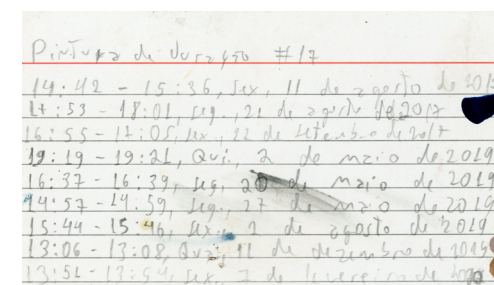 Pintura de Duração #17
14:42 - 15:36, sex, 11 de agosto de 2017
17:53 - 18:01, seg., 21 de agosto de 2017
16:55 - 17:05, sex., 22 de setembro de 2017
19:19 - 19:21, Qui., 2 de maio de 2019
16:37 - 16:39, seg, 20 de maio de 2019
14:57 - 14:59, seg., 27 de maio de 2019
15:44 - 15:46, sex., 2 de agosto de 2019
13:06 - 13:08, Qua., 11 de dezembro de 2019
13:51 - 13:54, sex., 7 de fevereiro de 2020